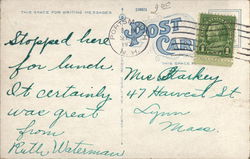 THIS SPACE FOR WRITING MESSAGES
POST CARD
Stopped here
for lunch
It certainly
was great
from
Ruth Waterman
Miss Starkey
47 Harvest St
Lynn
Mass.